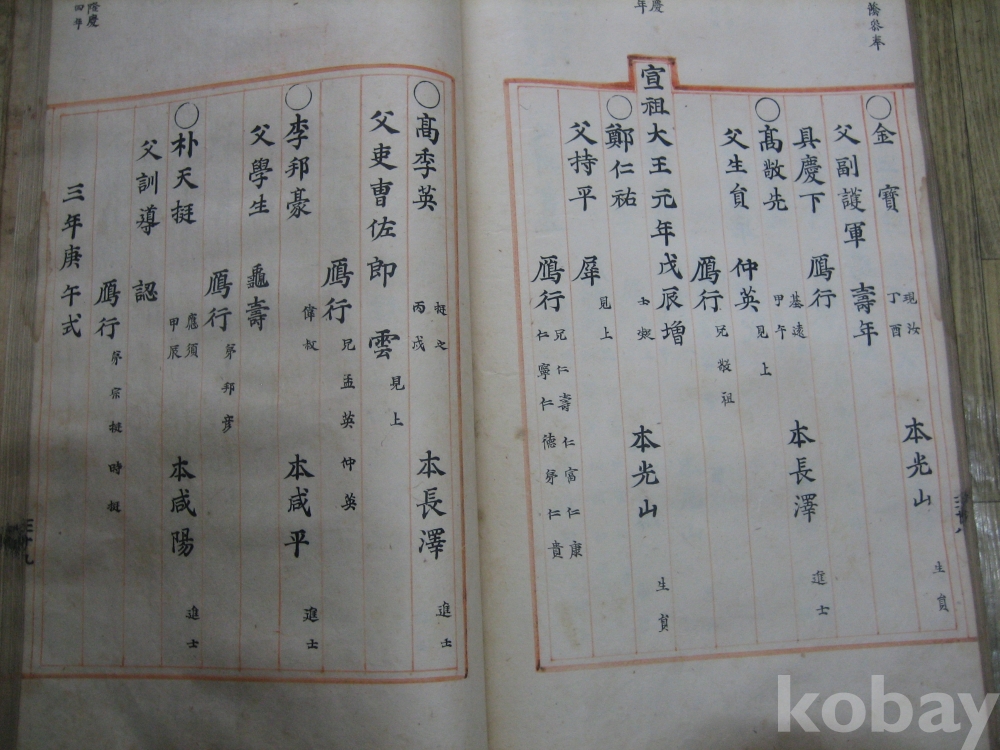 ○金寶 現汝 丁酉 本光山 生貟
父副護軍 壽年
具慶下 鴈行
○高敬先 基遠 甲午 本長澤 進士
父生貟 仲英 見上
鴈行 兄敬祖
宣祖大王元年戊辰增
○鄭仁祐 本光山 生貟
父持平 犀 見上
鴈行 兄仁壽仁富仁康 仁寧仁德 弟仁貴
○高季英 丙戌 本長澤 進士
父吏曹佐郎 雲 見上
鴈行 兄孟英仲英
○李邦豪 偉叔 本咸平 進士
父學生 龜壽
鴈行 弟邦彦
○朴天挺 應須 甲辰 本咸陽 進士
父訓導 認
鴈行 弟宗挺時挺
三年庚午式
隆慶
四年
kobay